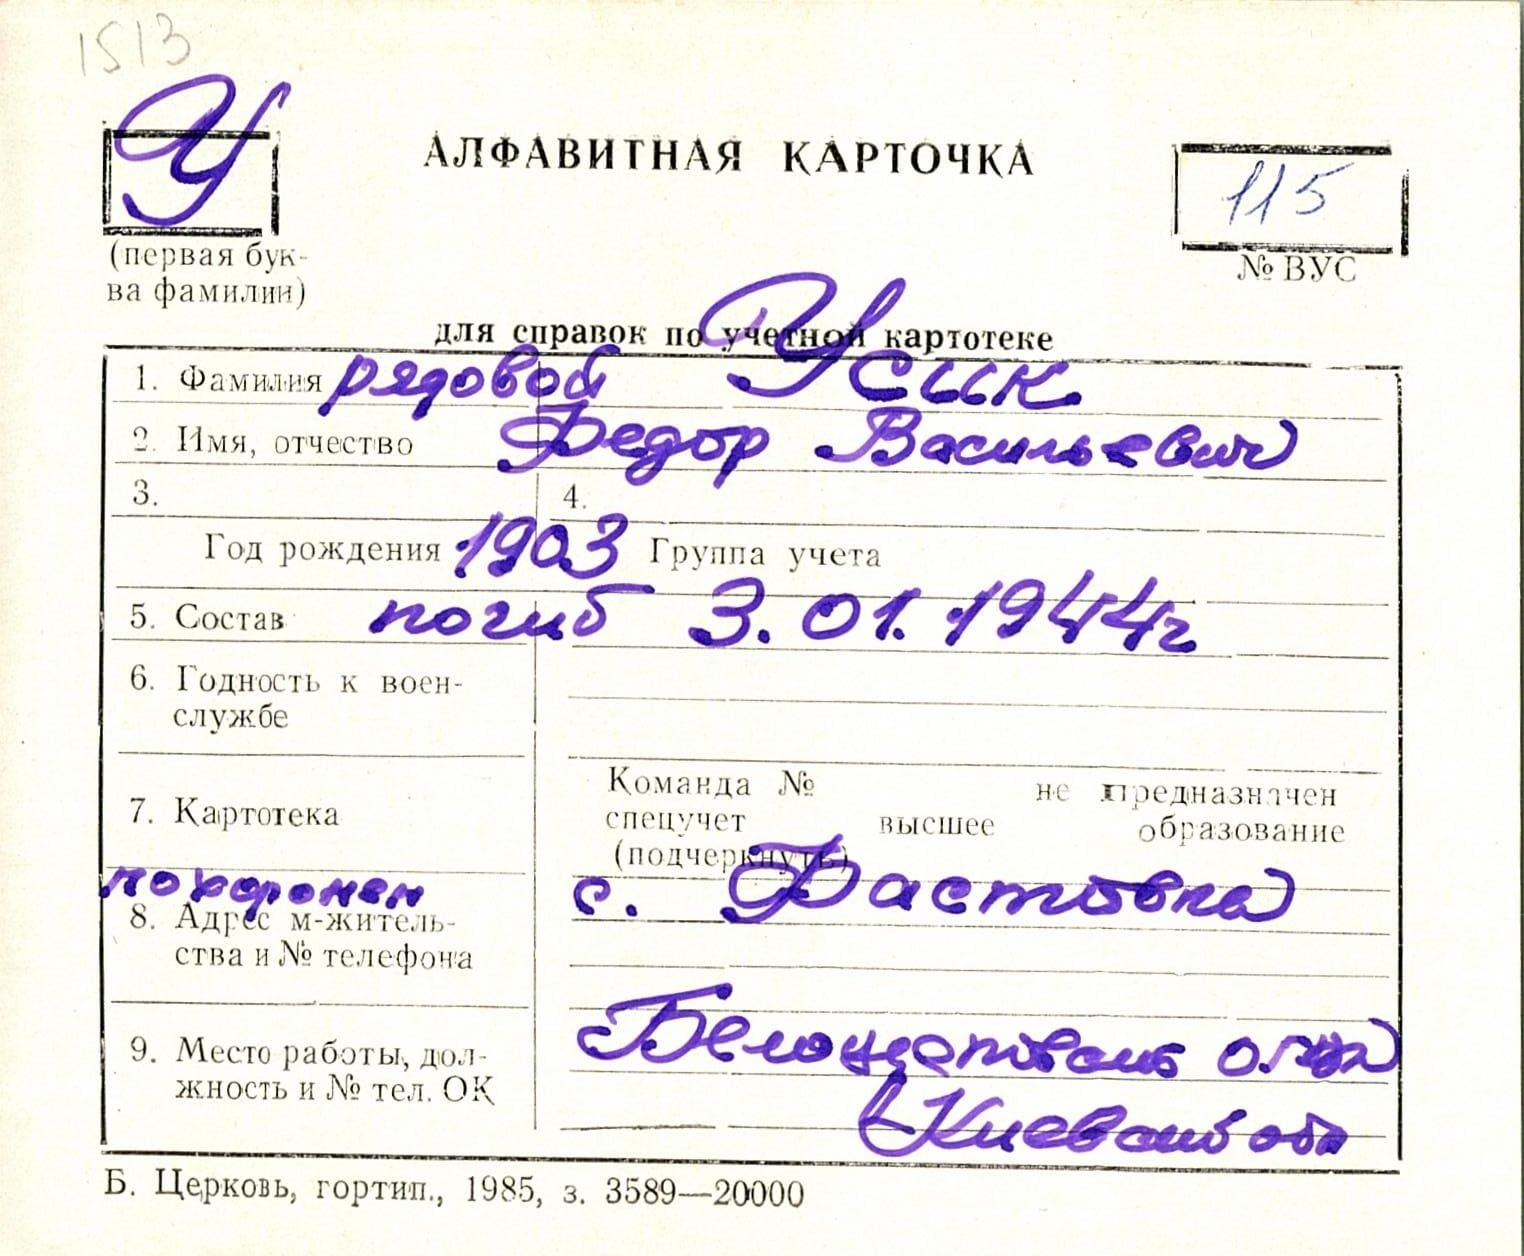 1513
У
АЛФАВИТНАЯ КАРТОЧКА
115
(первая бук-
ва фамилии)
№ ВУС
для справок по учетной картотеке
1. Фамилия рядовой Усик
2. Имя, отчество Федор Васильевич
3. 4.
Год рождения 1903 Группа учета
5. Состав погиб 3.01.1944г
6. Годность к воен-
службе
Команда № не предназначен
7. Картотека
спецучет высшее образование
(подчеркнуть)
похоронен с. Фастовка
8. Адрес м-житель-
ства и № телефона
Белоцерковский
9. Место работы, дол-
жность и № тел. ОК
Киевской обл
Б. Церковь, гортип., 1985, з. 3589—20000